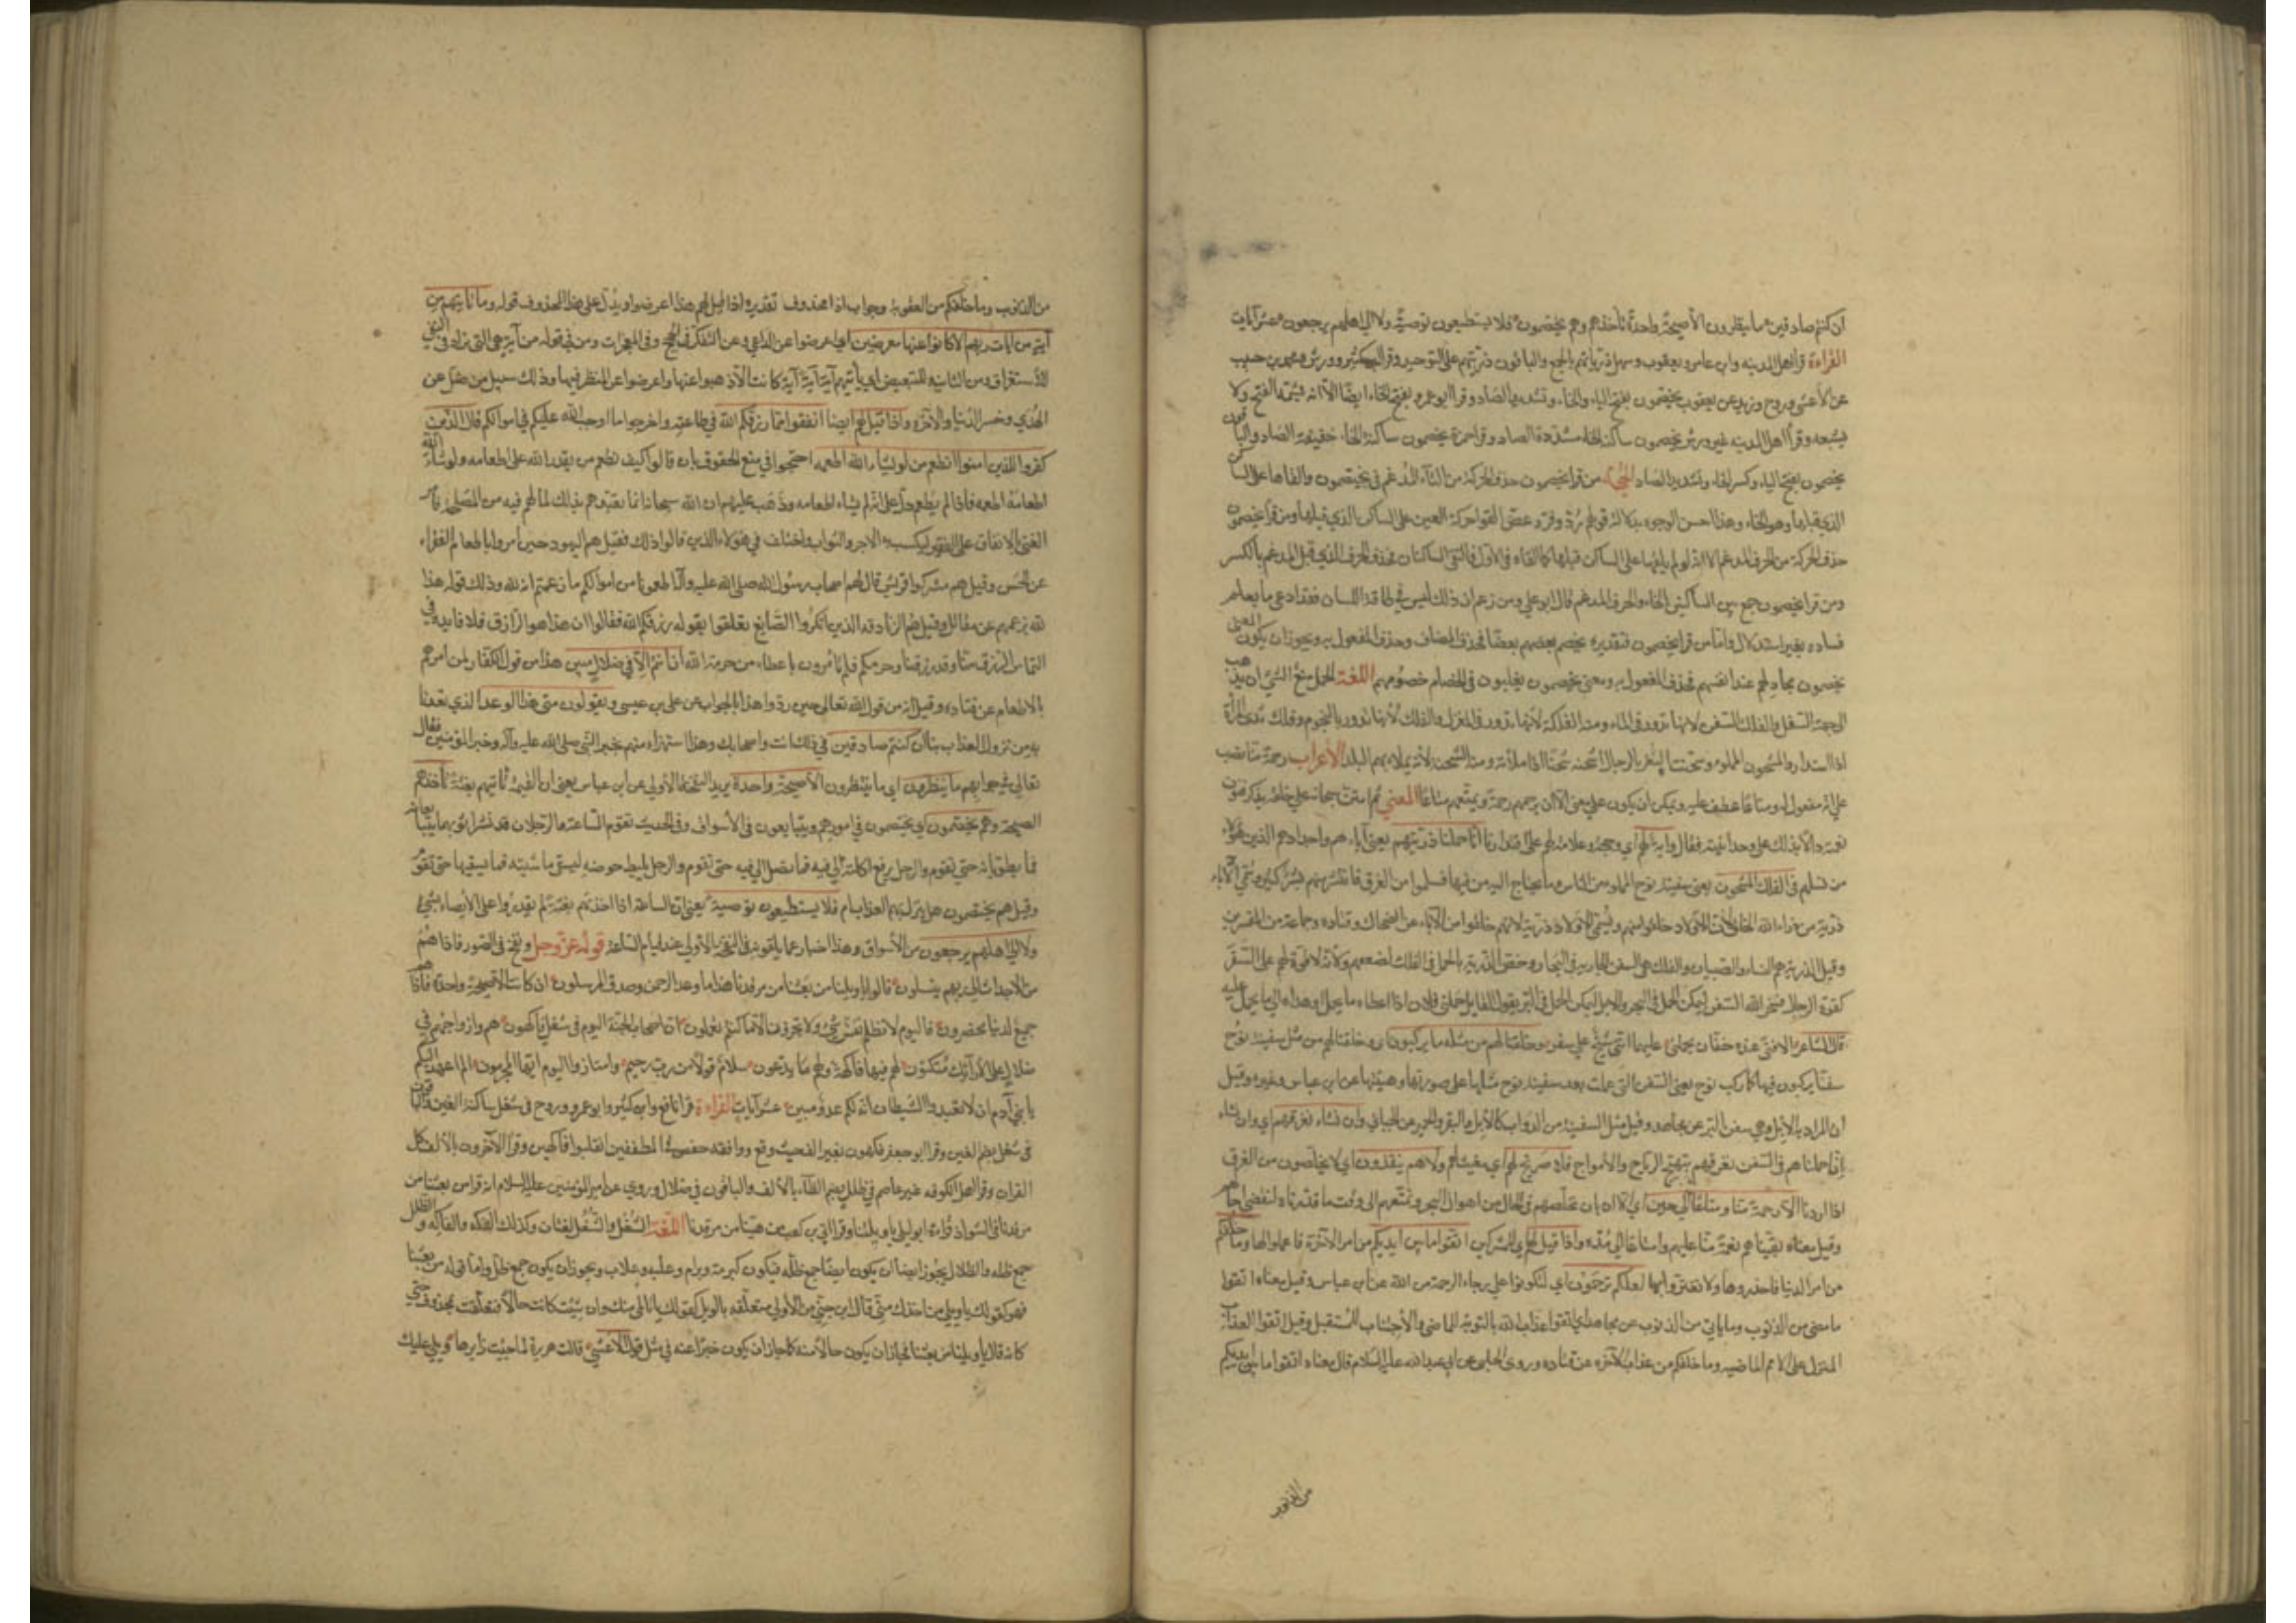 ان كنتم صادقين ما ينظرون الا صيحة واحدة تأخذهم وهم يخصمون فلا يستطيعون توصية ولا الى اهلهم يرجعون عشر آيات
القراءة قرأ اهل المدينه وابن عامر ويعقوب وسهل ذرياتهم بالجمع والباقون ذريتهم على التوحيد وقرأ ابن كثير وورش ومحمد بن حبيب
عن الأعشى وروح وزيد عن يعقوب يخصمون بفتح الياء والخاء وتشديد الصاد وقرأ ابو عمرو بفتح الخاء ايضا الا انه يشمه الفتح ولا
يشبعه وقرأ اهل المدينه غير ورش يخصمون ساكنة الخاء مشددة الصاد وقرأ حمزة يخصمون ساكنة الخاء خفيفة الصاد والباقون
يخصمون بفتح الياء وكسر الخاء وتشديد الصاد الحجة من قرأ يخصمون حذف الحركة من التاء المدغم في يختصمون والقاها على الساكن
الذي قبلها وهو الخاء وهذا احسن الوجوه بدلالة قولهم رد وفر وعض القوا حركة العين على الساكن الذي قبلها ومن قرأ يخصمون
حذف الحركة من الحرف المدغم الا انه لم يلقها على الساكن قبلها كما القاه في الاول فالتقى الساكنان فحذف الحرف الذي قبل المدغم بالكسر
ومن قرأ يخصمون جمع بين الساكنين الخاء والحرف المدغم قال ابو علي ومن زعم ان ذلك ليس في طاقة اللسان فقد ادعى ما يعلم
فساده بغير استدلال واما من قرأ يخصمون فتقديره يخصم بعضهم بعضا فحذف المضاف وحذف المفعول به ويجوز ان يكون المعنى
يخصمون مجادلهم عند انفسهم فحذف المفعول به ومعنى يخصمون يغلبون في الخصام خصومهم اللغة الحمل منع الشئ ان يذهب
الى جهة السفل والفلك السفن لانها تدور في الماء ومنه الفلكة لأنها تدور في المغزل والفلك لأنها تدور بالنجوم وفلك ثدي المرأة
اذا استدار والمشحون المملوء وشحنت الثغر بالرجال اشحنه شحنا اذا ملأته ومنه الشحنة لأنه يملأ بهم البلد الأعراب رحمة منا نصب
على انه مفعول له ومتاعا عطف عليه ويمكن ان يكون على معنى الا ان يرحمهم رحمة ويمتعهم متاعا المعنى ثم امتن سبحانه على خلقه بذكر فنون
نعمته دالا بذلك على وحدانيته فقال وآية لهم اي وحجة وعلامة لهم على اقتدارنا انا حملنا ذريتهم يعني آباءهم واجدادهم الذين هؤلاء
من نسلهم في الفلك المشحون يعني سفينة نوح المملوة من الناس وما يحتاج اليه من فيها فسلموا من الغرق فانتشر منهم بشر كثير وتسمى الآباء
ذرية من ذراء الله الخلق لان الاولاد خلقوا منهم وتسمى الاولاد ذرية لانهم خلقوا من الآباء عن الضحاك وقتاده وجماعة من المفسرين
وقيل الذرية هم النساء والصبيان والفلك هي السفن الجارية في البحار وخص الذرية بالحمل في الفلك لضعفهم ولانه لا قوة لهم على السفر
كقوة الرجال فسخر الله السفن ليمكن الحمل في البحر والابل ليمكن الحمل في البر يقول القائل حملني فلان اذا اعطاه ما يحمل عليه
قال الشاعر الا فتى عنده خفان يحملني عليهما انني شيخ على سفر وخلقنا لهم من مثله ما يركبون اي وخلقنا لهم من مثل سفينة نوح
سفنا يركبون فيها كما ركب نوح يعني السفن التي عملت بعد سفينة نوح مثلها على صورتها وهيئتها عن ابن عباس وغيره وقيل
أن المراد به الابل وهي سفن البر عن مجاهد وقيل مثل السفينة من الدواب كالابل والبقر والحمير عن الجبائي وان نشاء نغرقهم اي وان نشاء
إذا حملناهم في السفن نغرقهم بتهييج الرياح والأمواج فلا صريخ لهم اي مغيث لهم ولا هم ينقذون اي لا يخلصون من الغرق
اذا اردناه الا رحمة منا ومتاعا الى حين اي الا ان نخلصهم في الحال من اهوال البحر ونمتعهم الى وقت ما قدرناه لتقضى آجالهم
وقيل معناه بقيناهم نعمة منا عليهم وامتاعا الى مدة واذا قيل لهم اي للمشركين اتقوا ما بين ايديكم من امر الآخرة فاعملوا لها وما خلفكم
من امر الدنيا فاحذروها ولا تغتروا بها لعلكم ترحمون اي لتكونوا على رجاء الرحمة من الله عن ابن عباس وقيل معناه اتقوا
ما مضى من الذنوب وما يأتي من الذنوب عن مجاهد اي اتقوا عذاب الله بالتوبة للماضي والأجتناب للمستقبل وقيل اتقوا العذاب
المنزل على الامم الماضيه وما خلفكم من عذاب الآخرة عن قتاده وروى الحلبي عن ابي عبد الله عليه السلام قال معناه اتقوا ما بين ايديكم
من الذنوب
من الذنوب وما خلفكم من العقوبة وجواب اذا محذوف تقديره اذا قيل لهم هذا اعرضوا ويدل على هذا المحذوف قوله وما تأتيهم من
آية من آيات ربهم الا كانوا عنها معرضين اي اعرضوا عن الداعي وعن التفكر في الحجج وفي المعجزات ومن في قوله من آية هي التي تزاد في النفي
للأستغراق ومن الثانية للتبعيض اي تأتيهم آية آية آية كانت الا ذهبوا عنها واعرضوا عن النظر فيها وذلك سبيل من ضل عن
الهدى وخسر الدنيا والآخرة واذا قيل لهم ايضا انفقوا مما رزقكم الله في طاعته واخرجوا ما اوجب الله عليكم في اموالكم قال الذين
كفروا للذين امنوا انطعم من لو يشاء الله اطعمه احتجوا في منع الحقوق بان قالوا كيف نطعم من يقدر الله على اطعامه ولو شاء الله
اطعامه اطعمه فاذا لم يطعم دل على انه لم يشاء اطعامه وذهب عليهم ان الله سبحانه انما تعبدهم بذلك لما لهم فيه من المصلحة فأمر
الغنى بالانفاق على الفقير ليكسب به الاجر والثواب واختلف في هؤلاء الذين قالوا ذلك فقيل هم اليهود حين أمروا باطعام الفقراء
عن الحسن وقيل هم مشركوا قريش قال لهم اصحاب رسول الله صلى الله عليه وآله اطعمونا من اموالكم ما زعمتم انه لله وذلك قوله هذا
لله بزعمهم عن مقاتل وقيل هم الزنادقه الذين انكروا الصانع تعلقوا بقوله رزقكم الله فقالوا ان هذا هو الرازق فلا فايدة في
التماس الرزق منا وقد رزقنا وحرمكم فلم تأمرون باعطاء من حرمه الله ان انتم الا في ضلال مبين هذا من قول الكفار لمن امرهم
بالاطعام عن قتاده وقيل انه من قول الله تعالى حين ردوا هذا الجواب عن علي بن عيسى ويقولون متى هذا الوعد الذي تعدنا
به من نزول العذاب بنا ان كنتم صادقين في ذلك انت واصحابك وهذا استهزاء منهم بخبر النبي صلى الله عليه وآله وخبر المؤمنين فقال
تعالى في جوابهم ما ينظرون اي ما ينتظرون الا صيحة واحدة يريد النفخة الأولى عن ابن عباس يعني ان القيمة تأتيهم بغتة تأخذهم
الصيحة وهم يخصمون اي يختصمون في امورهم ويتبايعون في الأسواق وفي الحديث تقوم الساعة والرجلان قد نشرا ثوبهما يتبايعانه
فما يطويانه حتى تقوم والرجل يرفع اكلته الى فيه فما تصل الى فيه حتى تقوم والرجل يليط حوضه ليسقي ماشيته فما يسقيها حتى تقوم
وقيل هم يختصمون هل ينزل بهم العذاب ام لا فلا يستطيعون توصية يعني ان الساعة اذا اخذتهم بغتة لم يقدروا على الأيصاء بشئ
ولا الى اهلهم يرجعون من الأسواق وهذا اخبار عما يلقونه في النفخة الأولى عند قيام الساعة قوله عز وجل ونفخ في الصور فاذا هم
من الاجداث الى ربهم ينسلون قالوا يا ويلنا من بعثنا من مرقدنا هذا ما وعد الرحمن وصدق المرسلون ان كانت الا صيحة واحدة فاذا هم
جميع لدينا محضرون فاليوم لا تظلم نفس شيئا ولا تجزون الا ما كنتم تعملون ان اصحاب الجنة اليوم في شغل فاكهون هم وازواجهم في
ظلال على الارائك متكئون لهم فيها فاكهة ولهم ما يدعون سلام قولا من رب رحيم وامتازوا اليوم ايها المجرمون الم اعهد اليكم
يا بني آدم ان لا تعبدوا الشيطان انه لكم عدو مبين عشر آيات القراءة قرأ نافع وابن كثير وابو عمرو وروح في شغل ساكنة الغين والباقون
في شغل بضم الغين وقرأ ابو جعفر فكهون بغير الف حيث وقع ووافقه حفص في المطففين انقلبوا فاكهين وقرأ الآخرون بالألف كل
القرآن وقرأ اهل الكوفه غير عاصم في ظلل بضم الظاء بلا الف والباقون في ظلال وروي عن امير المؤمنين عليه السلام انه قرأ من بعثنا من
مرقدنا في الشواذ قراءة ابو ليلى يا ويلتنا وقرأ ابي بن كعب من هبنا من مرقدنا اللغة الشغل والشغل لغتان وكذلك الفكه والفاكه والظلل
جمع ظله والظلال يجوز ايضا ان يكون ايضا جمع ظلة فيكون كبرمة وبرام وعلبة وعلاب ويجوز ان يكون جمع ظل واما قوله من بعثنا
فهو كقولك يا ويلي من اخذك مني قال ابن جني من الأولى متعلقه بالويل كقولك يا تالمي منك وان شئت كانت حالا فتعلقت بمحذوف حتى
كانه قال يا ويلنا من بعثنا فجاز ان يكون حالا منه كما جاز ان يكون خبرا عنه في مثل قول الأعشى قالت هريرة لما جئت زايرها ويلي عليك